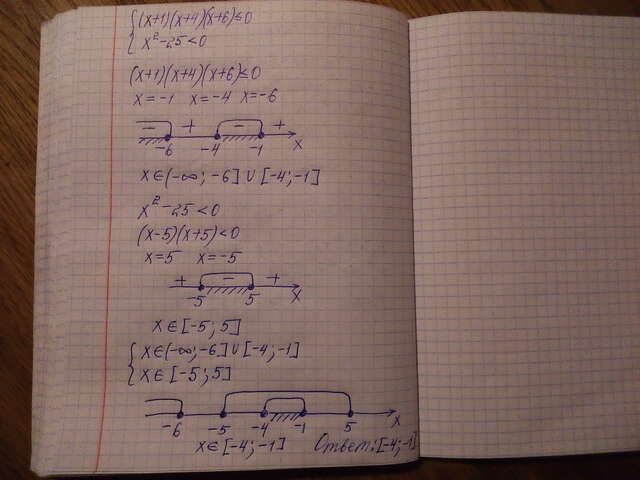 { (x+1)(x+4)(x+6)≤0
{ x²-25<0
(x+1)(x+4)(x+6)≤0
x=-1 x=-4 x=-6
- + - +
-6 -4 -1 x
x∈(-∞; -6] ∪ [-4; -1]
x²-25<0
(x-5)(x+5)<0
x=5 x=-5
+ - +
-5 5 x
x∈[-5; 5]
{ x∈(-∞; -6] ∪ [-4; -1]
{ x∈[-5; 5]
-6 -5 -4 -1 5 x
x∈[-4; -1] Ответ: [-4; -1]